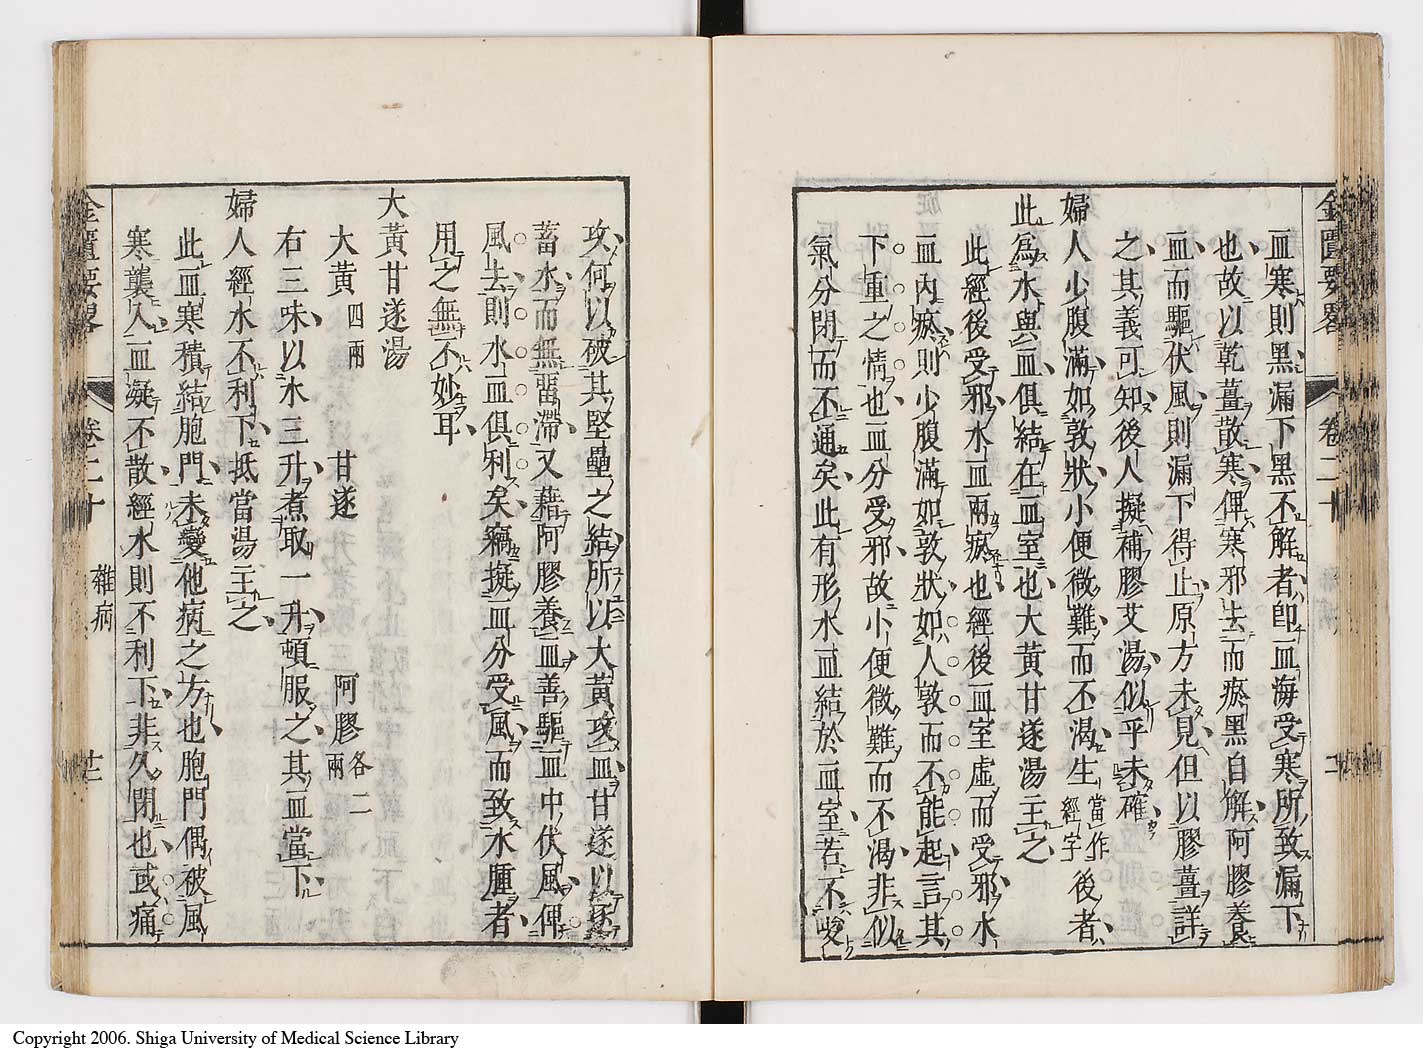 金匱要畧 卷二十
血寒則黑漏下黑不解者即血海受寒所致漏下
也故以乾薑散寒俾寒邪去而瘀黑自解阿膠養
血而驅伏風則漏下得止原方未見但以膠薑詳
之其義可知後人擬補膠艾湯似乎未確
婦人少腹滿如敦狀小便微難而不渴生當作經字後者
此為水與血俱結在血室也大黃甘遂湯主之
此經後受邪水血兩瘀也經後血室虛而受邪水
血內瘀則少腹滿如敦狀如人敦而不能起言其
下重之情也血分受邪故小便微難而不渴非似
氣分閉而不通矣此有形水血結於血室若不峻
攻何以破其堅壘之結所以大黃攻血甘遂以逐
蓄水而無畱滯又藉阿膠養血善驅血中伏風俾
風去則水血俱利矣竊擬血分受風而致水腫者
用之無不妙耳
大黃甘遂湯
大黃四兩 甘遂 阿膠各二兩
右三味以水三升煮取一升頓服之其血當下
婦人經水不利下抵當湯主之
此血寒積結胞門未變他病之方也胞門偶被風
寒襲入血凝不散經水則不利下非久閉也或痛
金匱要畧 卷二十 雜病 廿二
Copyright 2006. Shiga University of Medical Science Library